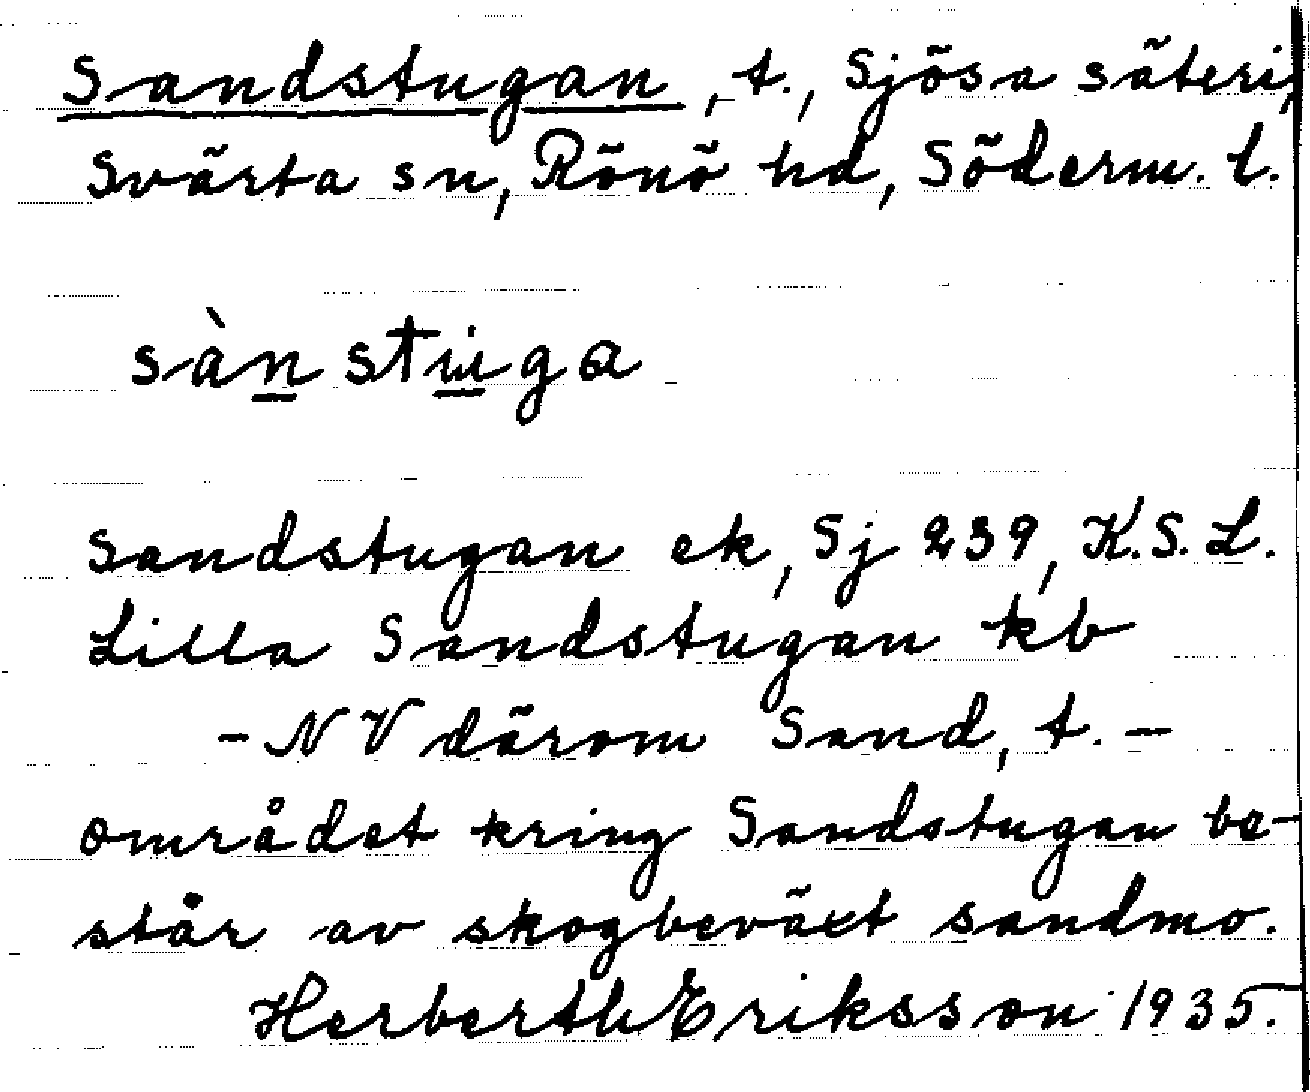 Sandstugan, t., Sjösa säteri,
Svärta sn, Rönö hd, Söderm. l.
sànstuga
Sandstugan ek, Sj 239, K.S.L.
Lilla Sandstugan kb
- NV därom Sand, t. -
området kring Sandstugan be-
står av skogbeväxt sandmo.
Herberth Eriksson 1935.